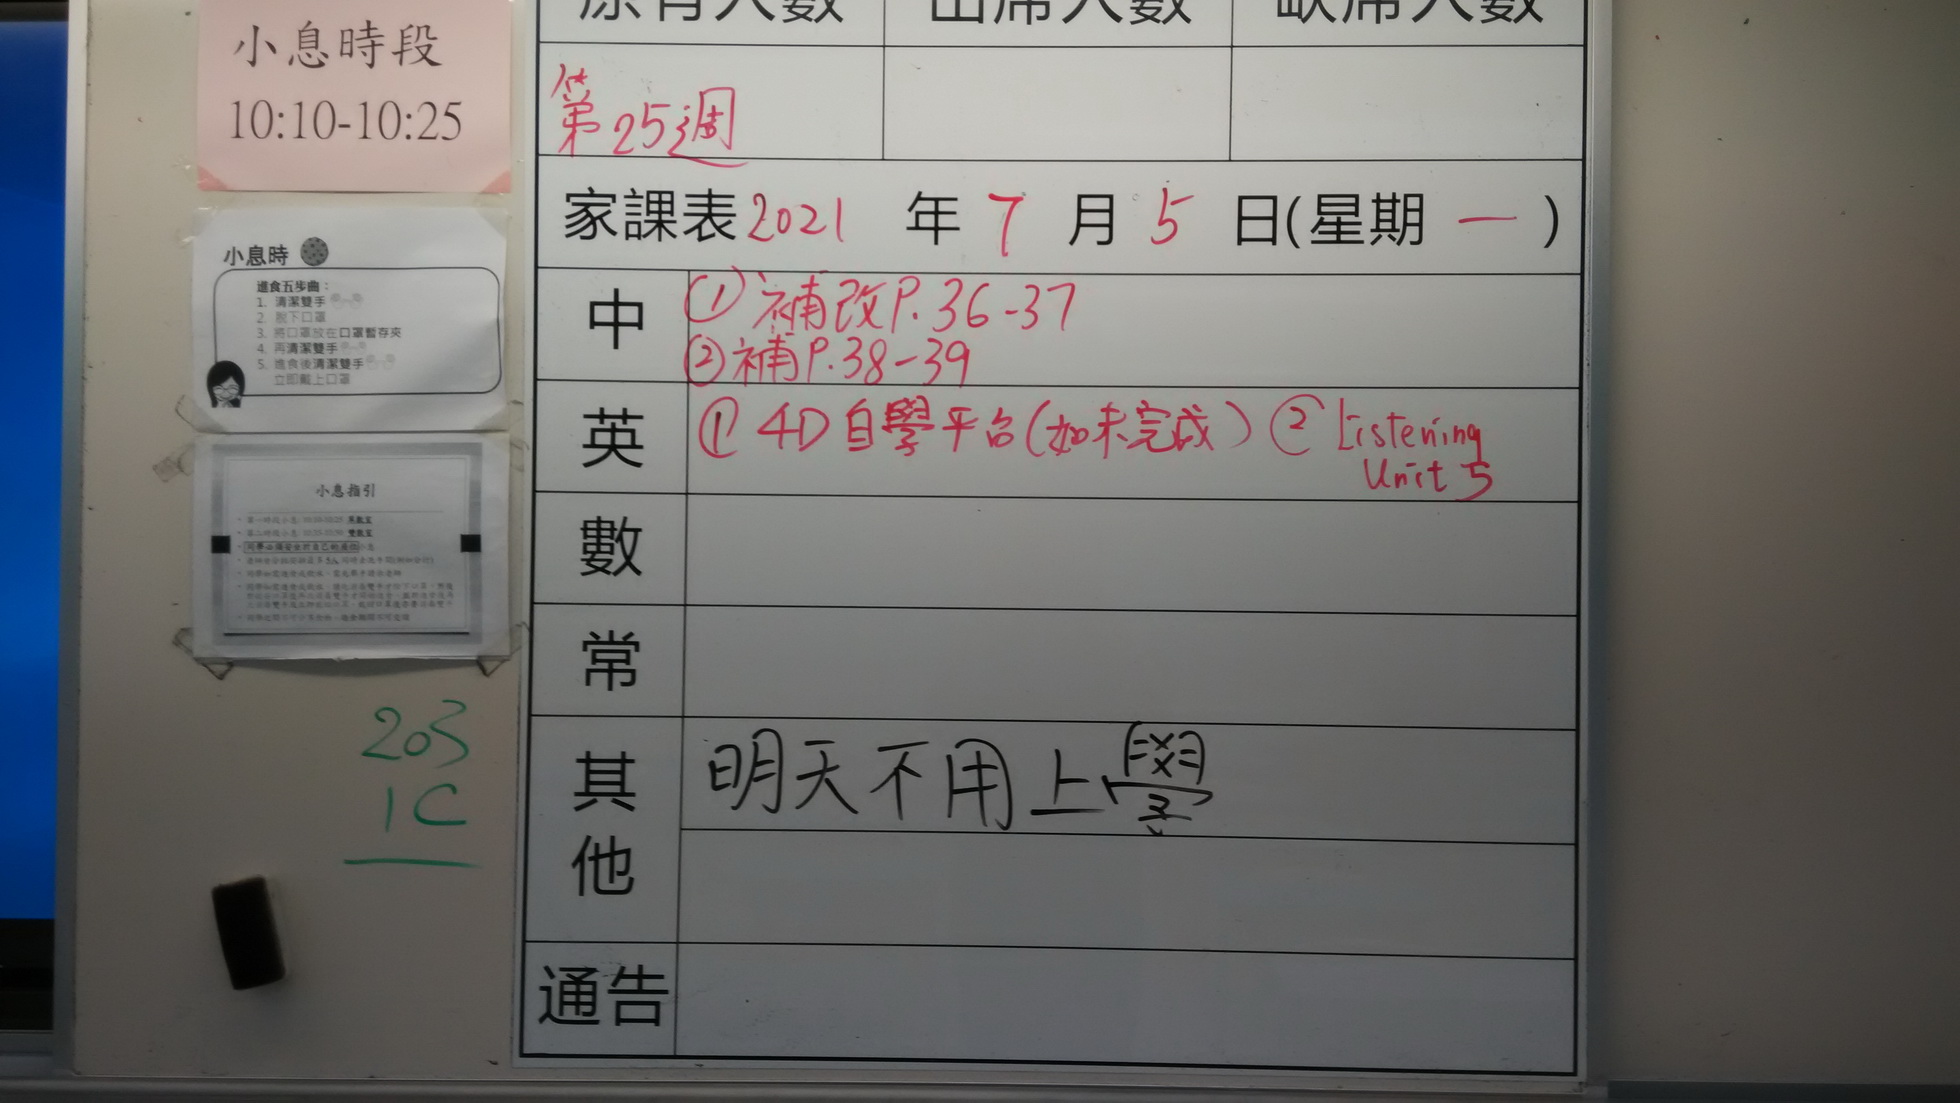 小息時段
10:10-10:25
小息時
進食五步曲：
1. 清潔雙手
2. 脫下口罩
3. 將口罩放在口罩暫存夾
4. 再清潔雙手
5. 進食後清潔雙手
立即戴上口罩
小息指引
203
1C
原有人數 出席人數 缺席人數
第25週
家課表2021 年 7 月 5 日(星期 一 )
中 ① 補改P.36-37
② 補P.38-39
英 ① 4D自學平台(如未完成) ② Listening
Unit 5
數
常
其他 明天不用上學
通告